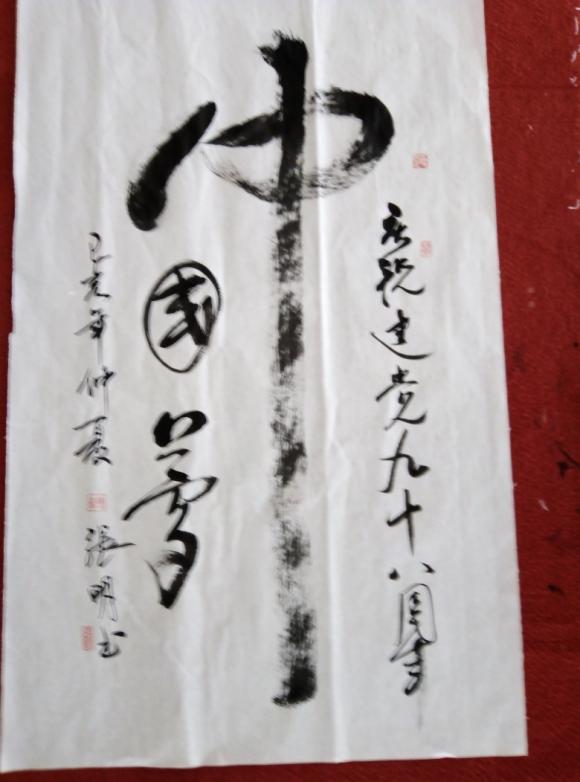 庆祝建党九十八周年
中国梦
己亥年仲夏
张明书